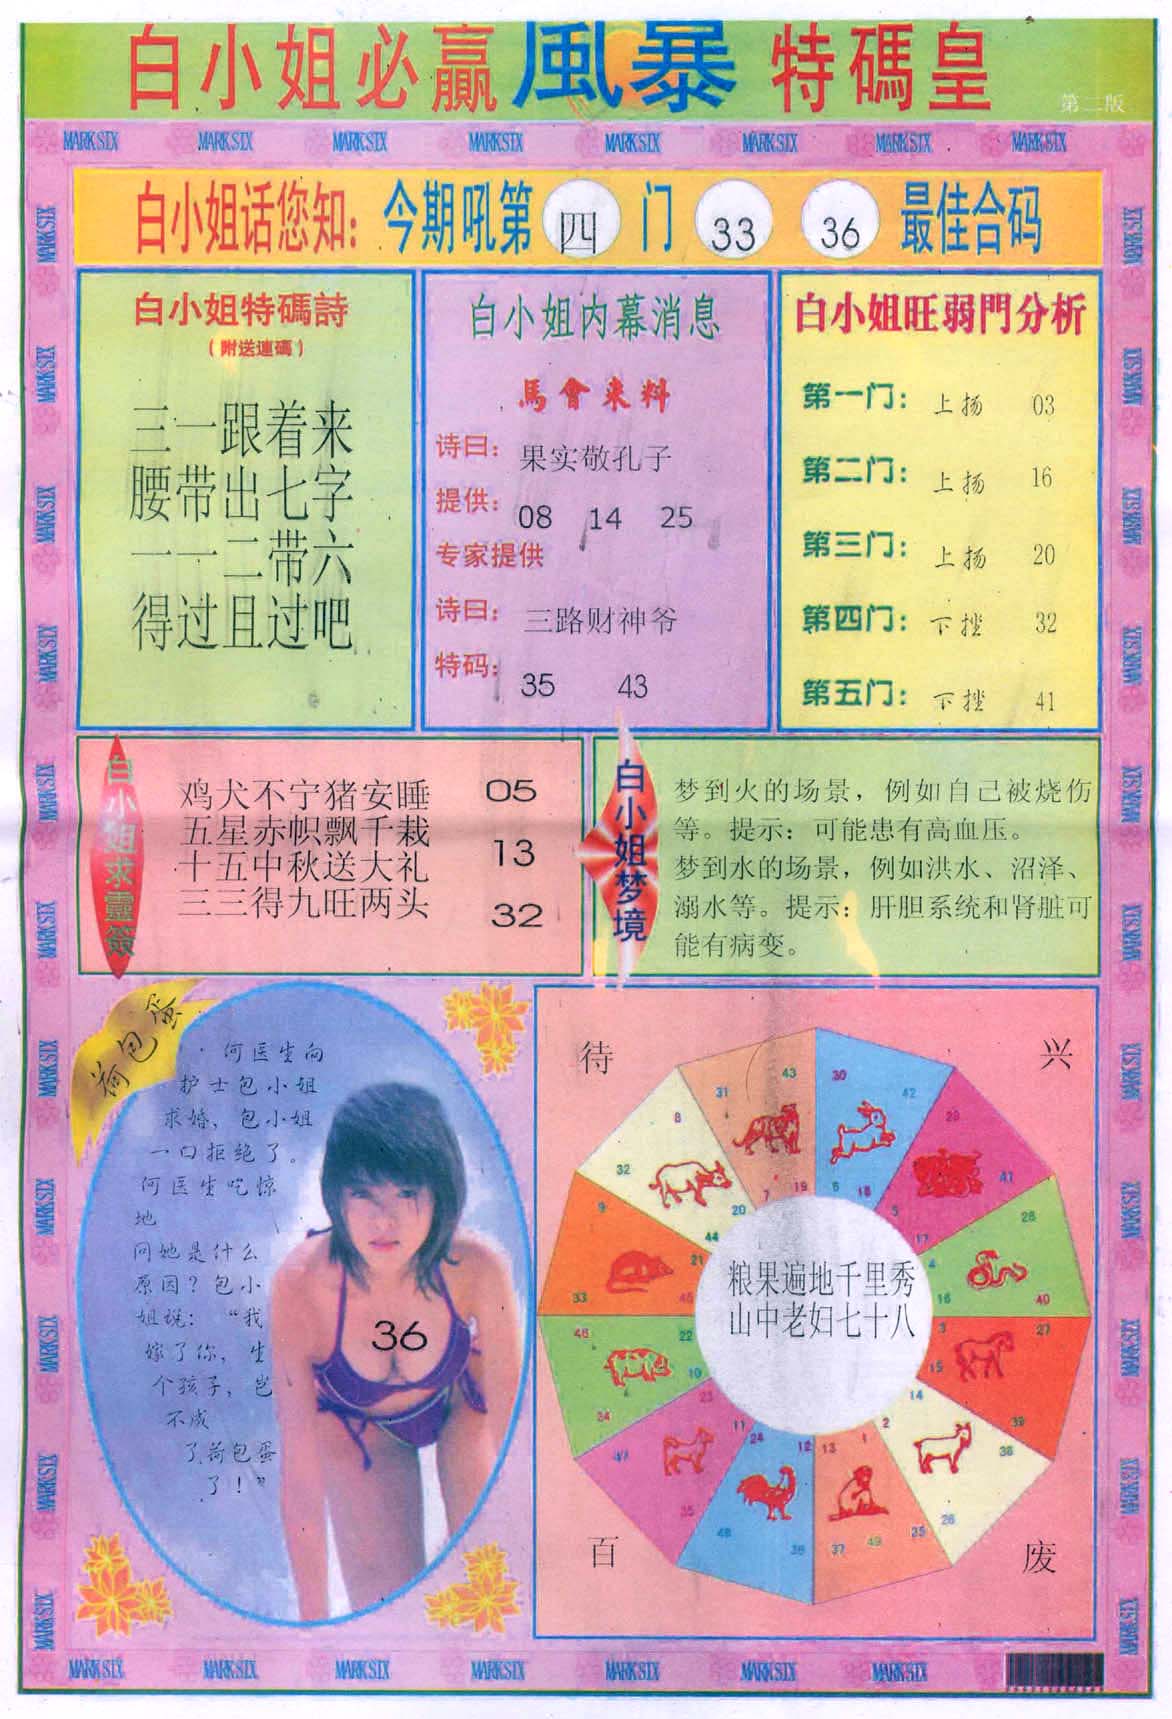 白小姐必赢風暴特碼皇
第二版
MARK SIX MARK SIX MARK SIX MARK SIX MARK SIX MARK SIX MARK SIX MARK SIX
白小姐话您知：今期吼第四门 33 36 最佳合码
白小姐特碼詩
（附送連碼）
三一跟着来
腰带出七字
一一二带六
得过且过吧
白小姐内幕消息
馬會來料
诗曰：果实敬孔子
提供：08 14 25
专家提供
诗曰：三路财神爷
特码：35 43
白小姐旺弱門分析
第一门：上扬 03
第二门：上扬 16
第三门：上扬 20
第四门：下挫 32
第五门：下挫 41
白小姐求靈簽
鸡犬不宁猪安睡 05
五星赤帜飘千栽
十五中秋送大礼 13
三三得九旺两头 32
白小姐梦境
梦到火的场景，例如自己被烧伤
等。提示：可能患有高血压。
梦到水的场景，例如洪水、沼泽、
溺水等。提示：肝胆系统和肾脏可
能有病变。
荷包蛋
何医生向
护士包小姐
求婚，包小姐
一口拒绝了。
何医生吃惊
地
问她是什么
原因？包小
姐说：“我
嫁了你，生
个孩子，岂
不成
了荷包蛋
了！”
36
待 兴
43 31 7 19
30 42 6 18
29 41 5 17
28 40 4 16
27 39 3 15
38 26 14 2
1 13 25 37 49
12 24 36 48
11 23 35 47
46 34 22 10
9 21 33 45
8 32 20 44
粮果遍地千里秀
山中老妇七十八
百 废
MARK SIX MARK SIX MARK SIX MARK SIX MARK SIX MARK SIX MARK SIX